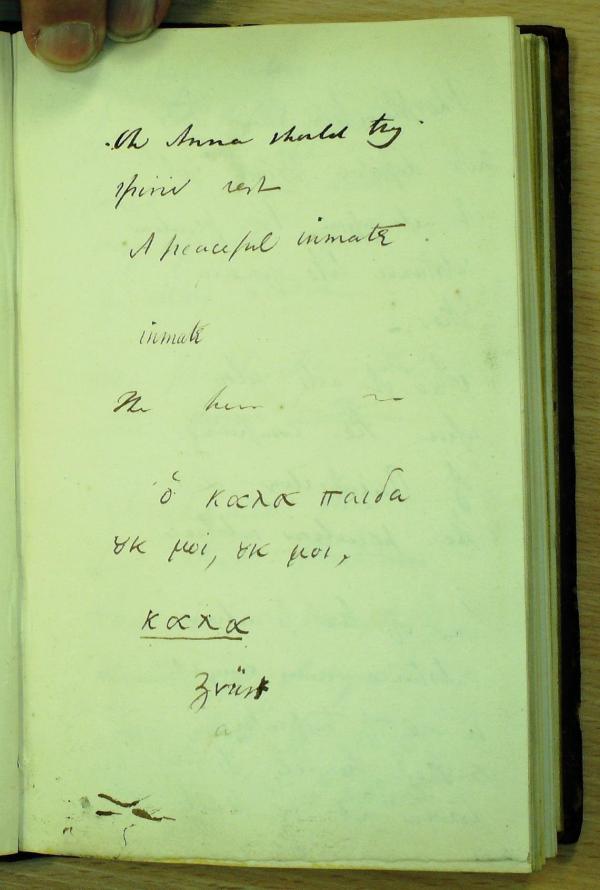 Oh Anna should thy
spirit rest
A peaceful inmate
inmate
The
ὁ καλα παιδα
ȣκ μοι, ȣκ μοι,
καλα
a